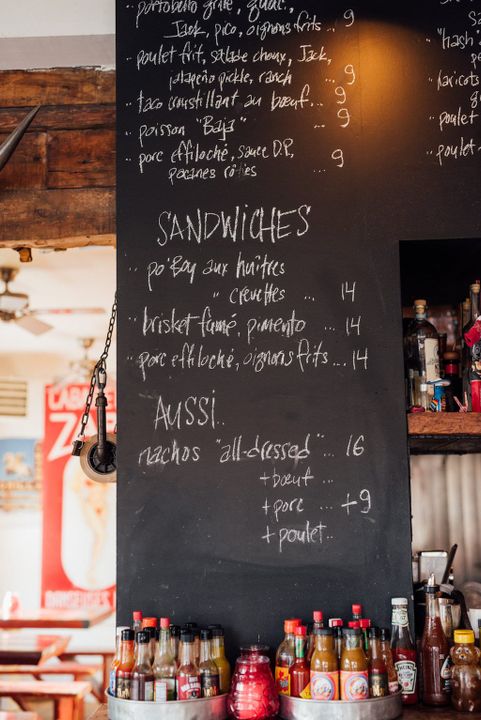 portobello grillé, guac.,
Jack, pico, oignons frits .. 9
.. poulet frit, salade choux, Jack,
jalapeño pickle, ranch .. 9
.. taco croustillant au bœuf... 9
.. poisson "Baja" ... 9
.. porc effiloché, sauce D.P.,
pacanes rôties ... 9
SANDWICHES
.. po'Boy aux huîtres
" crevettes ... 14
.. brisket fumé, pimento ... 14
.. porc effiloché, oignons frits... 14
AUSSI..
nachos "all-dressed" ... 16
+ bœuf ...
+ porc ... +9
+ poulet..
"hash
haricots
.. poulet
.. poulet
LABA
Z
DANSEUSES
HEINZ